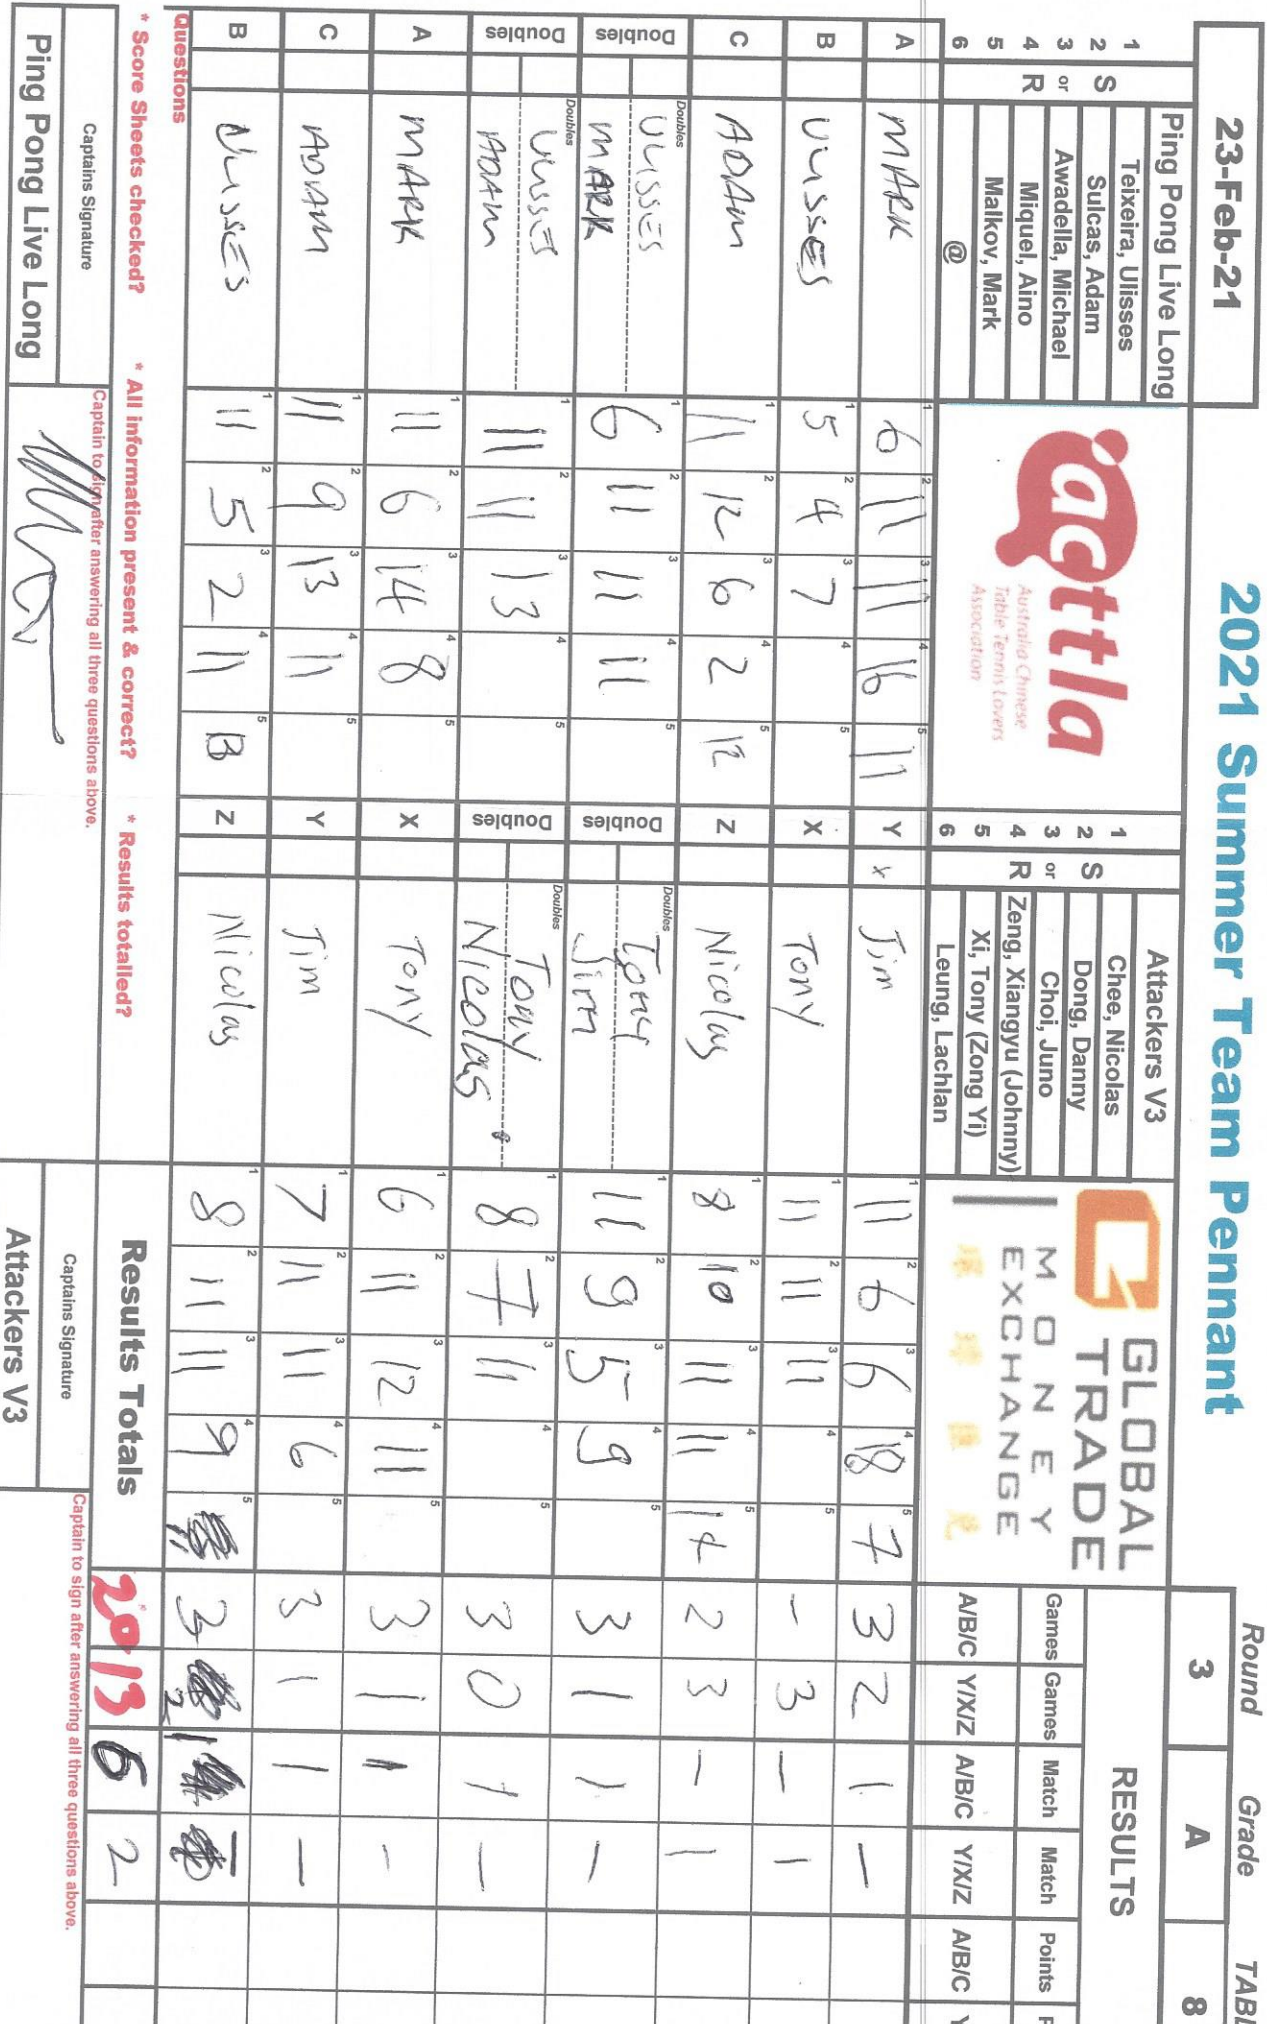 23-Feb-21
2021 Summer Team Pennant
Round
Grade
3
A
8
Ping Pong Live Long
1 Teixeira, Ulisses
2 S Sulcas, Adam
3 or Awadella, Michael
4 R Miquel, Aino
5 Malkov, Mark
6 @
acttla
Australia Chinese
Table Tennis Lovers
Association
Attackers V3
1 Chee, Nicolas
2 S Dong, Danny
3 or Choi, Juno
4 R Zeng, Xiangyu (Johnny)
5 Xi, Tony (Zong Yi)
6 Leung, Lachlan
GLOBAL
TRADE
MONEY
EXCHANGE
環球找兌
RESULTS
Games Games Match Match Points
A/B/C Y/X/Z A/B/C Y/X/Z A/B/C
A MARK 1 6 2 11 3 11 4 16 5 11 Y x Jim 1 11 2 6 3 6 4 18 5 7 3 2 1 –
B ULISSES 1 5 2 4 3 7 4 5 X Tony 1 11 2 11 3 11 4 5 – 3 – 1
C ADAM 1 11 2 12 3 6 4 2 5 12 Z Nicolas 1 8 2 10 3 11 4 11 5 14 2 3 – 1
Doubles Doubles ULISSES MARK 1 6 2 11 3 11 4 11 5 Doubles Doubles Tony Jim 1 11 2 9 3 5 4 9 5 3 1 1 –
Doubles Doubles ULISSES ADAM 1 11 2 11 3 13 4 5 Doubles Doubles Tony Nicolas 1 8 2 7 3 11 4 5 3 0 1 –
A MARK 1 11 2 6 3 14 4 8 5 X Tony 1 6 2 11 3 12 4 11 5 3 1 1 –
C ADAM 1 11 2 9 3 13 4 11 5 Y Jim 1 7 2 11 3 11 4 6 5 3 1 1 –
B ULISSES 1 11 2 5 3 2 4 11 5 13 Z Nicolas 1 8 2 11 3 11 4 9 5 3 2 1 –
Questions
* Score Sheets checked? * All information present & correct? * Results totalled?
Results Totals 20 13 6 2
Captains Signature
Captain to sign after answering all three questions above.
Ping Pong Live Long
Captains Signature
Captain to sign after answering all three questions above.
Attackers V3